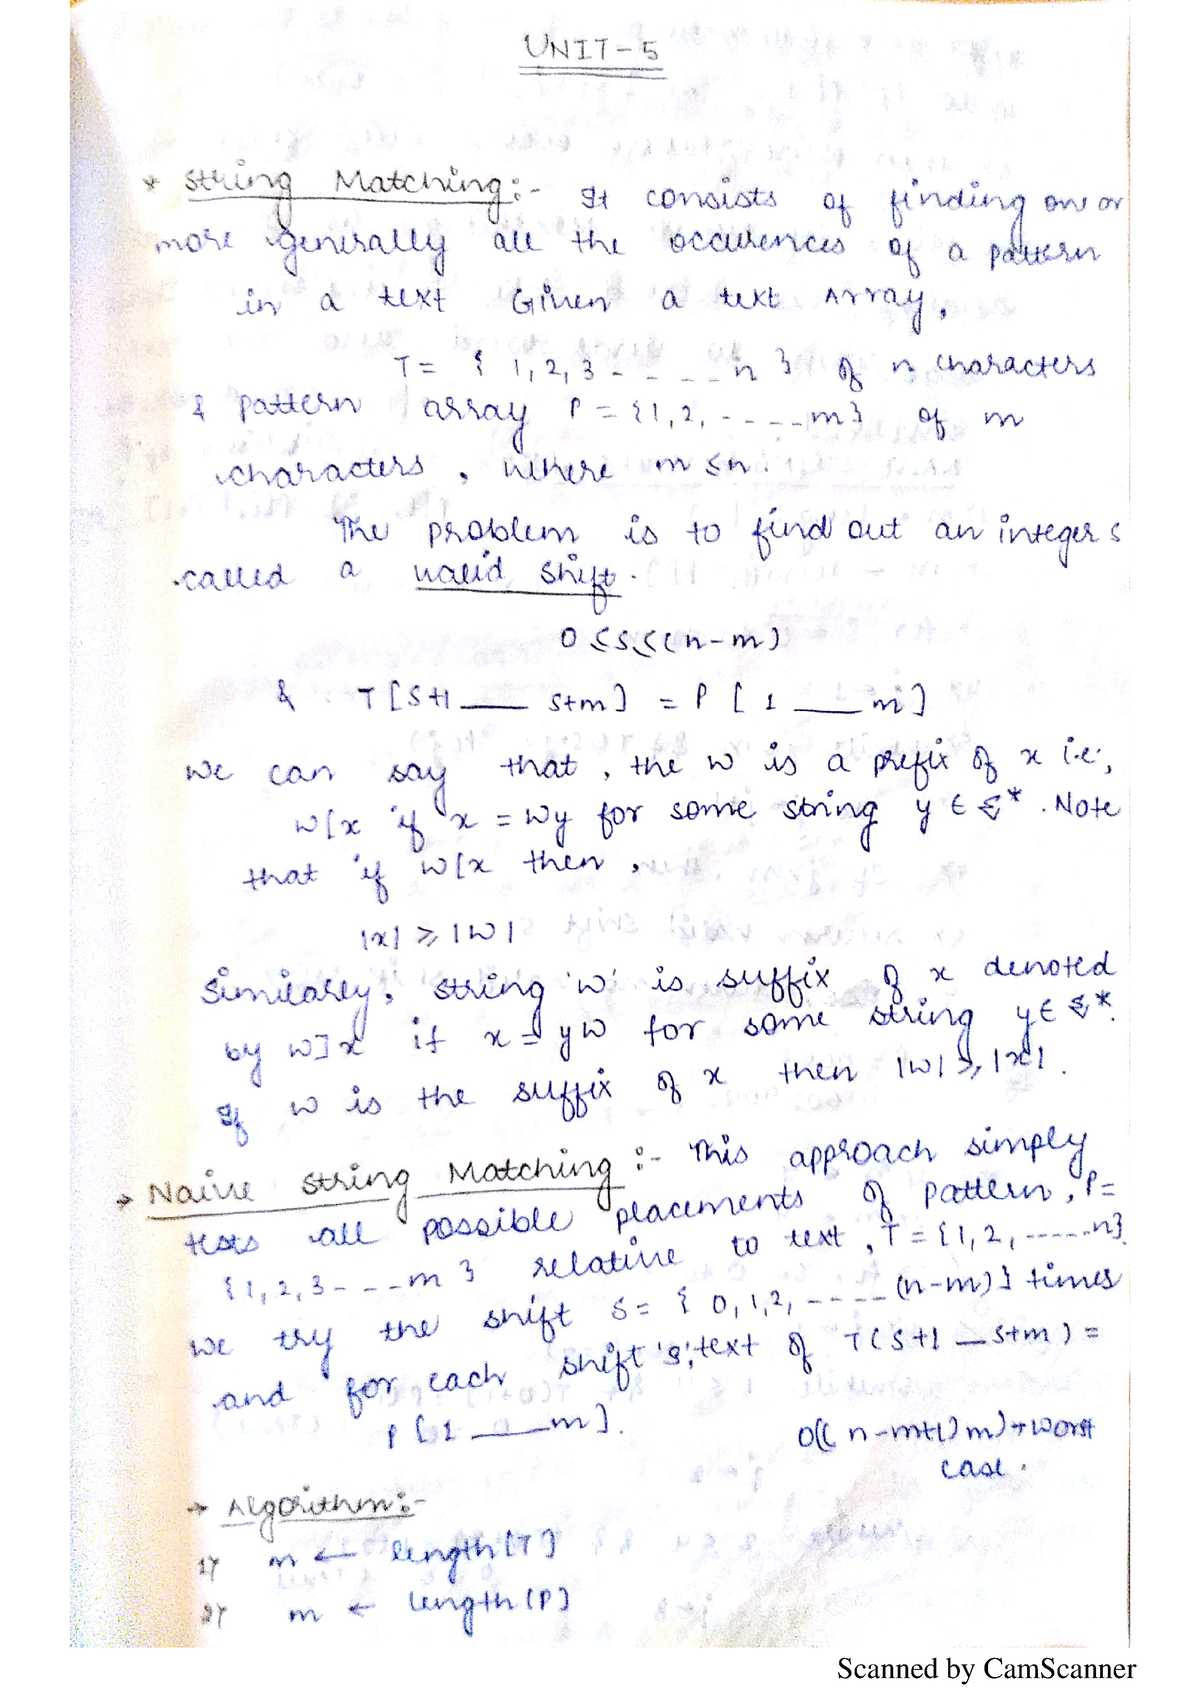 UNIT-5
* String Matching:- It consists of finding one or
more generally all the occurences of a pattern
in a text Given a text Array,
T = { 1, 2, 3 - - - - n } of n characters
& pattern array P = {1, 2, - - - - m} of m
characters, where m ≤ n.
The problem is to find out an integer s
called a valid shift.
0 ≤ s ≤ (n-m)
& T [S+1 ___ s+m] = P [ 1 ___ m ]
we can say that, the w is a prefix of x i.e;
w[x if x = wy for some string y ∈ Σ*. Note
that if w[x then,
|x| ≥ |w|
Similarly, string 'w' is suffix of x denoted
by w]x if x = yw for some string y ∈ Σ*.
If w is the suffix of x then |w| ≥ |x|.
→ Naive String Matching :- This approach simply
tests all possible placements of pattern, P =
{1, 2, 3 - - - m } relative to text, T = {1, 2, ------n}.
we try the shift s = { 0, 1, 2, ----- (n-m)} times
and for each shift 's', text of T(s+1 __ s+m) =
P [1 ___ m].
O(( n-m+1) m) → worst
case.
→ Algorithm:-
1) n ← length [T]
2) m ← length [P]
Scanned by CamScanner